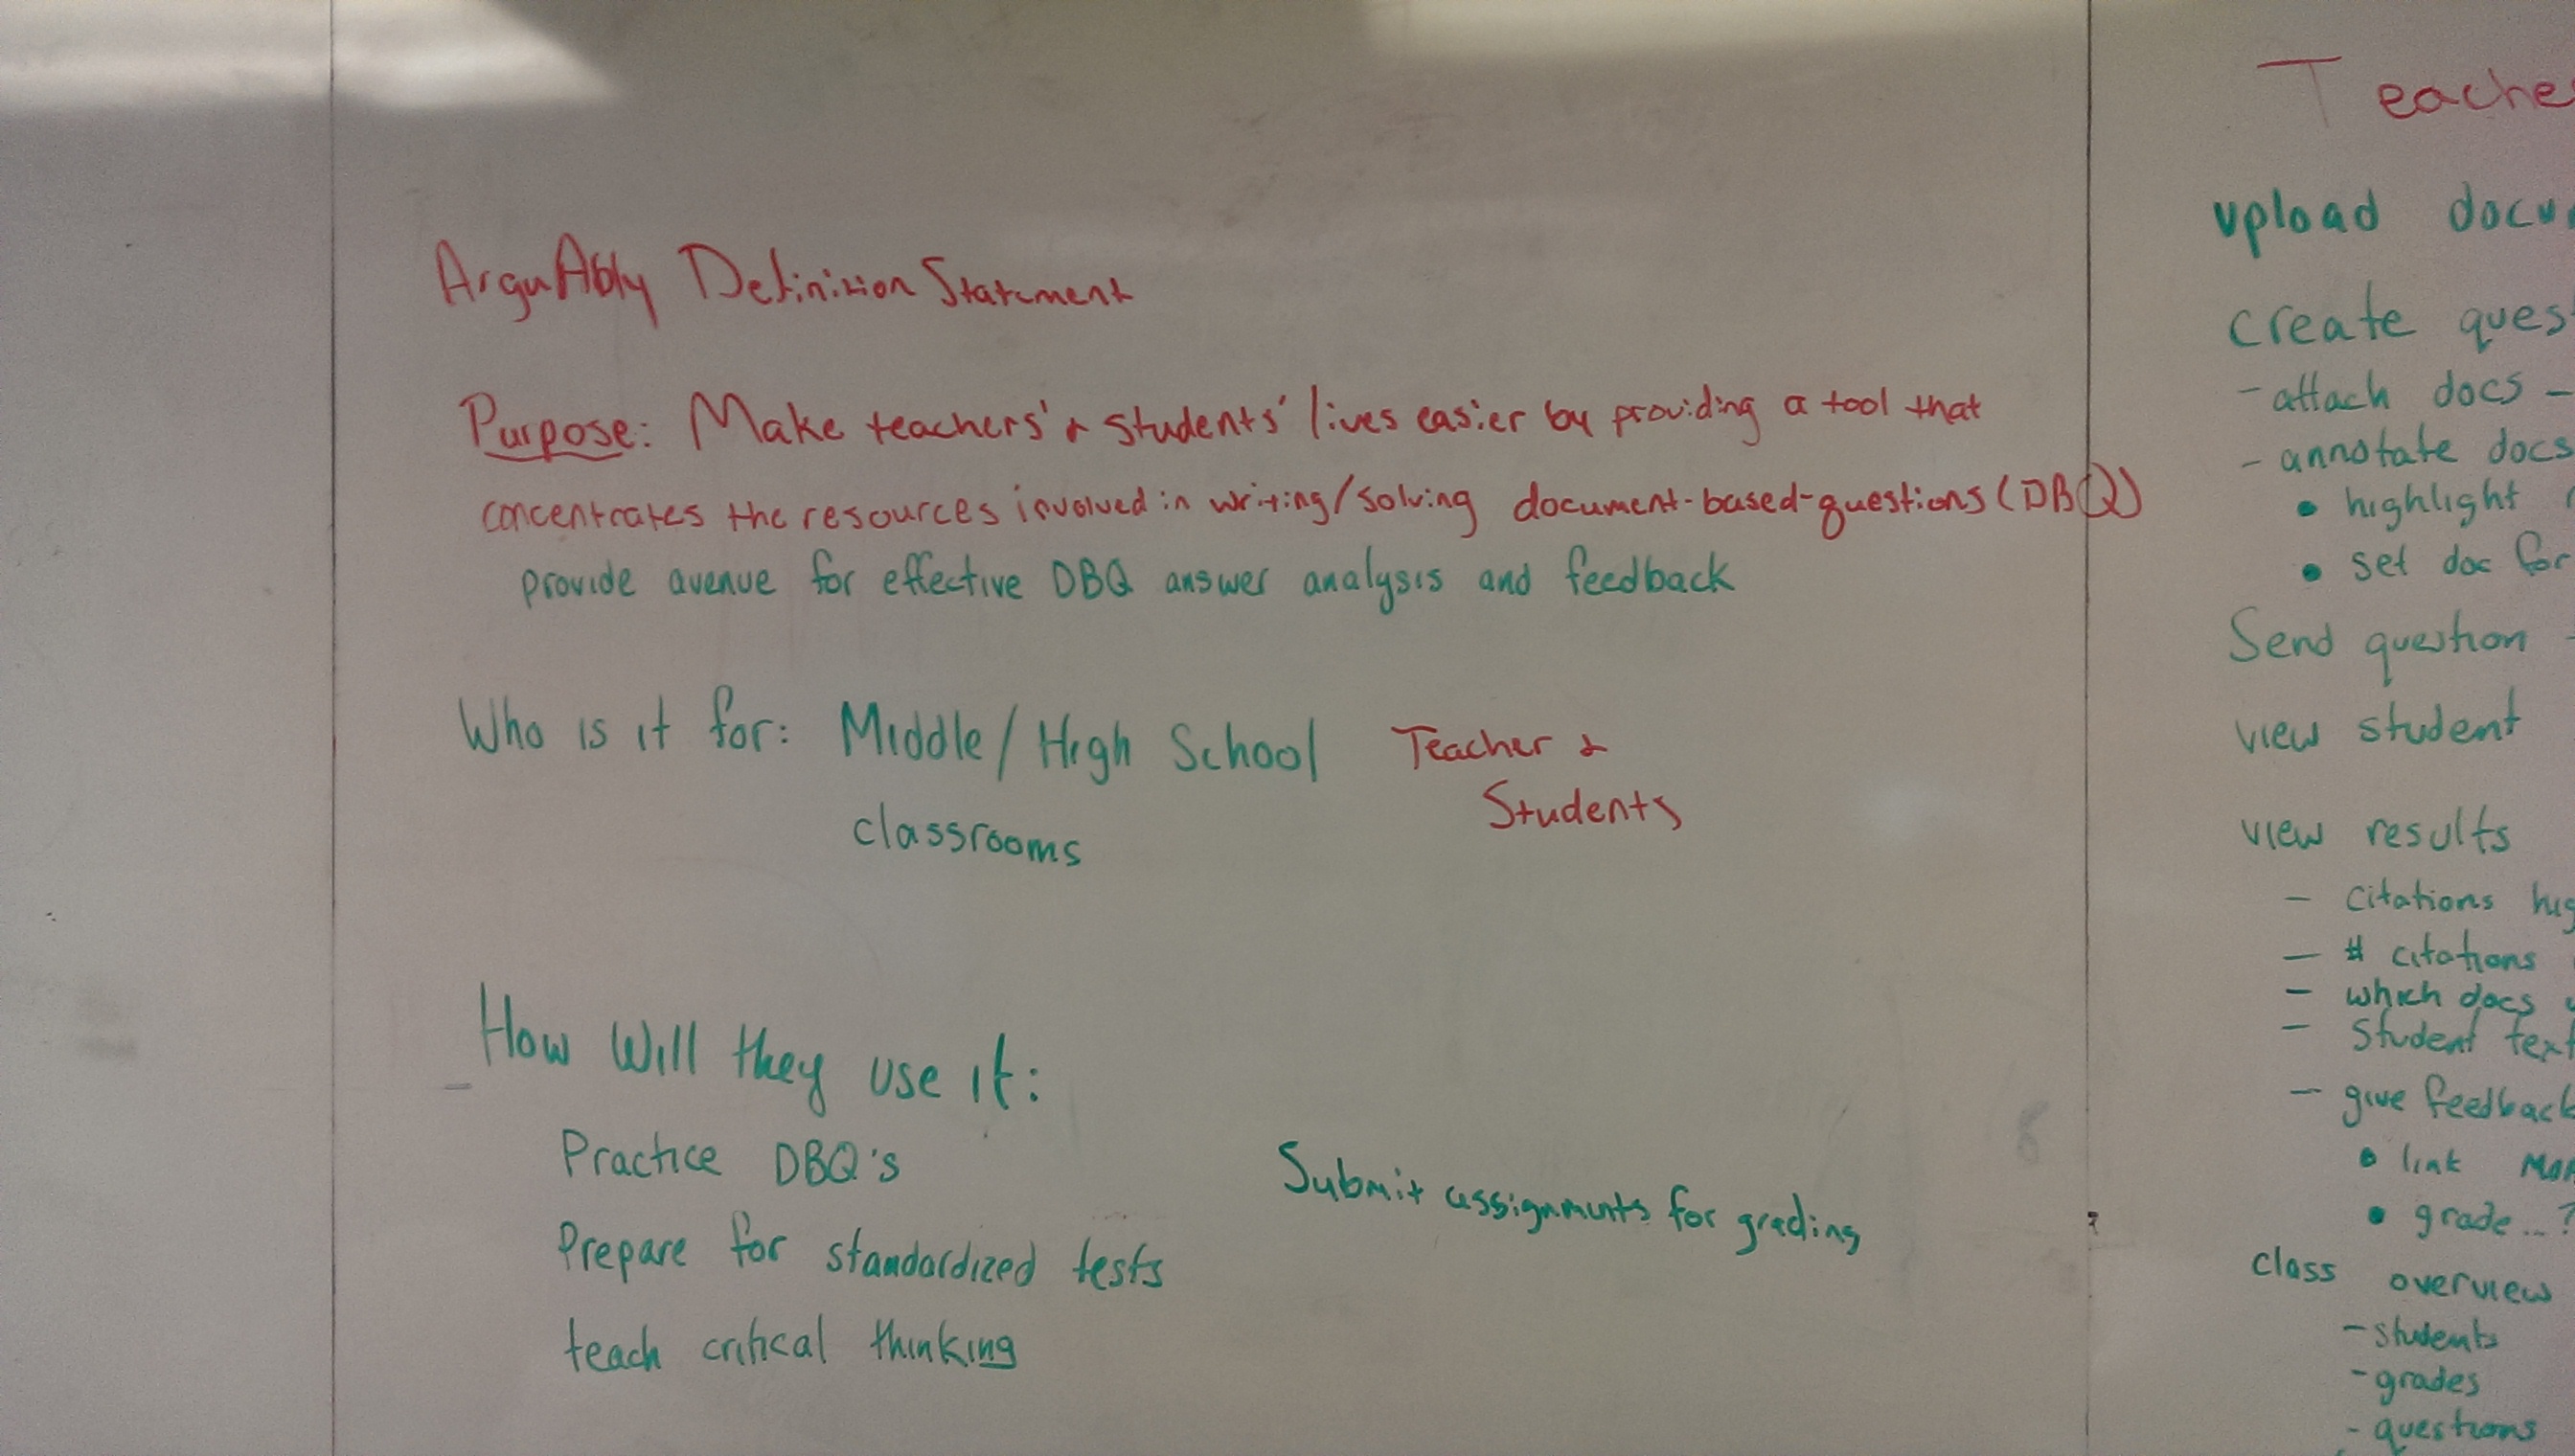 ArguAbly Definition Statement
Purpose: Make teachers' & students' lives easier by providing a tool that
concentrates the resources involved in writing/solving document-based-questions (DBQ)
provide avenue for effective DBQ answer analysis and feedback
Who is it for: Middle/High School Teacher &
Students
classrooms
How Will they use it:
Practice DBQ's
Submit assignments for grading
Prepare for standardized tests
teach critical thinking
Teache
upload docu
create ques
- attach docs -
- annotate docs
• highlight
• set doc for
Send question -
view student
view results
- citations hig
- # citations
- which docs
- Student text
- give feedback
• link
• grade...?
class overview
- students
- grades
- questions